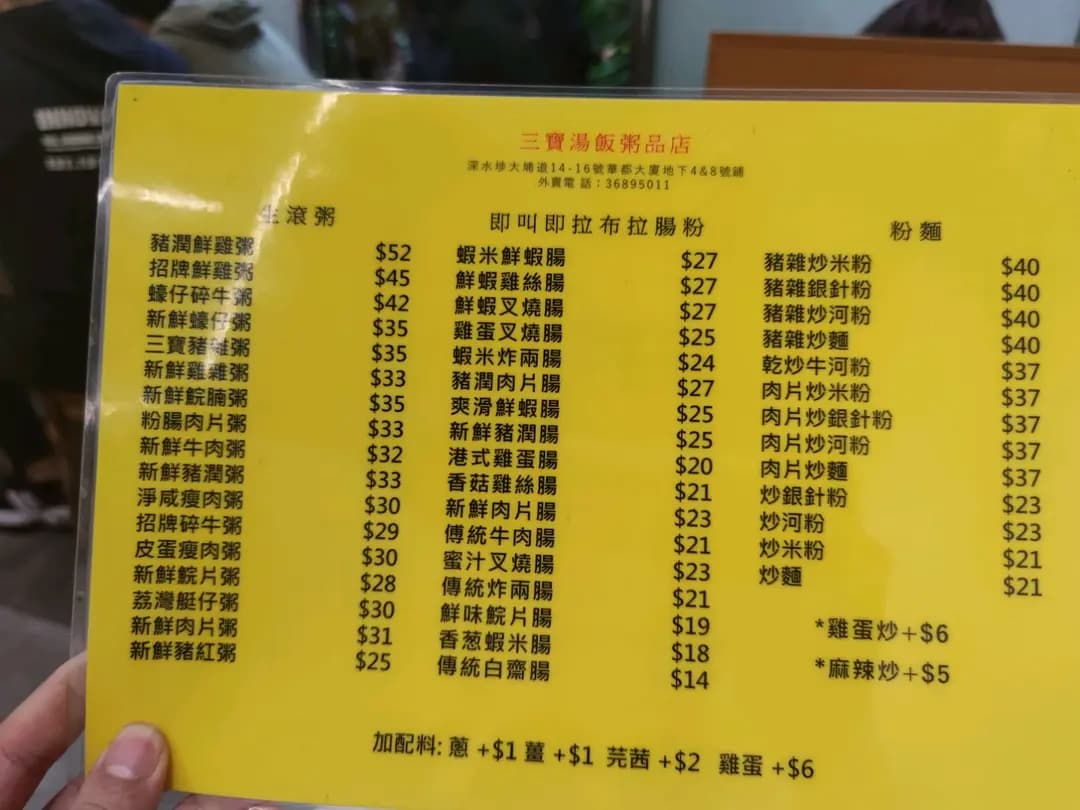 三寶湯飯粥品店
深水埗大埔道14-16號華都大廈地下4&8號鋪
外賣電話：36895011
生滾粥
豬潤鮮雞粥 $52
招牌鮮雞粥 $45
蠔仔碎牛粥 $42
新鮮蠔仔粥 $35
三寶豬雜粥 $35
新鮮雞雜粥 $33
新鮮鯇腩粥 $35
粉腸肉片粥 $33
新鮮牛肉粥 $32
新鮮豬潤粥 $33
淨咸瘦肉粥 $30
招牌碎牛粥 $29
皮蛋瘦肉粥 $30
新鮮鯇片粥 $28
荔灣艇仔粥 $30
新鮮肉片粥 $31
新鮮豬紅粥 $25
即叫即拉布拉腸粉
蝦米鮮蝦腸 $27
鮮蝦雞絲腸 $27
鮮蝦叉燒腸 $27
雞蛋叉燒腸 $25
蝦米炸兩腸 $24
豬潤肉片腸 $27
爽滑鮮蝦腸 $25
新鮮豬潤腸 $25
港式雞蛋腸 $20
香菇雞絲腸 $21
新鮮肉片腸 $23
傳統牛肉腸 $21
蜜汁叉燒腸 $23
傳統炸兩腸 $21
鮮味鯇片腸 $19
香葱蝦米腸 $18
傳統白齋腸 $14
粉麵
豬雜炒米粉 $40
豬雜銀針粉 $40
豬雜炒河粉 $40
豬雜炒麵 $40
乾炒牛河粉 $37
肉片炒米粉 $37
肉片炒銀針粉 $37
肉片炒河粉 $37
肉片炒麵 $37
炒銀針粉 $23
炒河粉 $23
炒米粉 $21
炒麵 $21
*雞蛋炒+$6
*麻辣炒+$5
加配料: 蔥 +$1 薑 +$1 芫茜 +$2 雞蛋 +$6